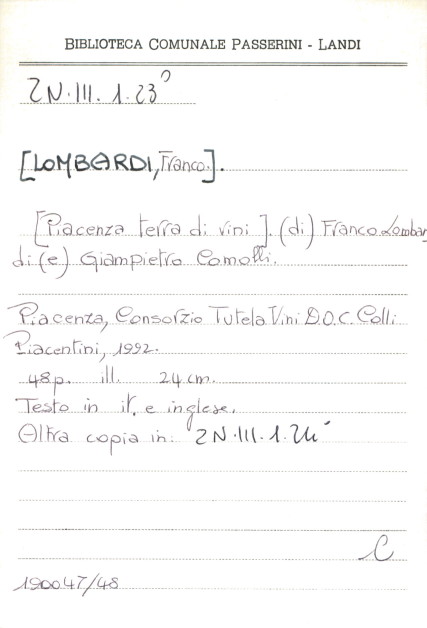 BIBLIOTECA COMUNALE PASSERINI - LANDI
2N.III.1.23°
[LOMBARDI, Franco.].
[Piacenza terra di vini]. (di) Franco Lombar
di (e) Giampietro Comolli.
Piacenza, Consorzio Tutela Vini D.O.C. Colli
Piacentini, 1992.
48p. ill. 24 cm.
Testo in it. e inglese.
Altra copia in: 2N.III.1.24
C
190047/48